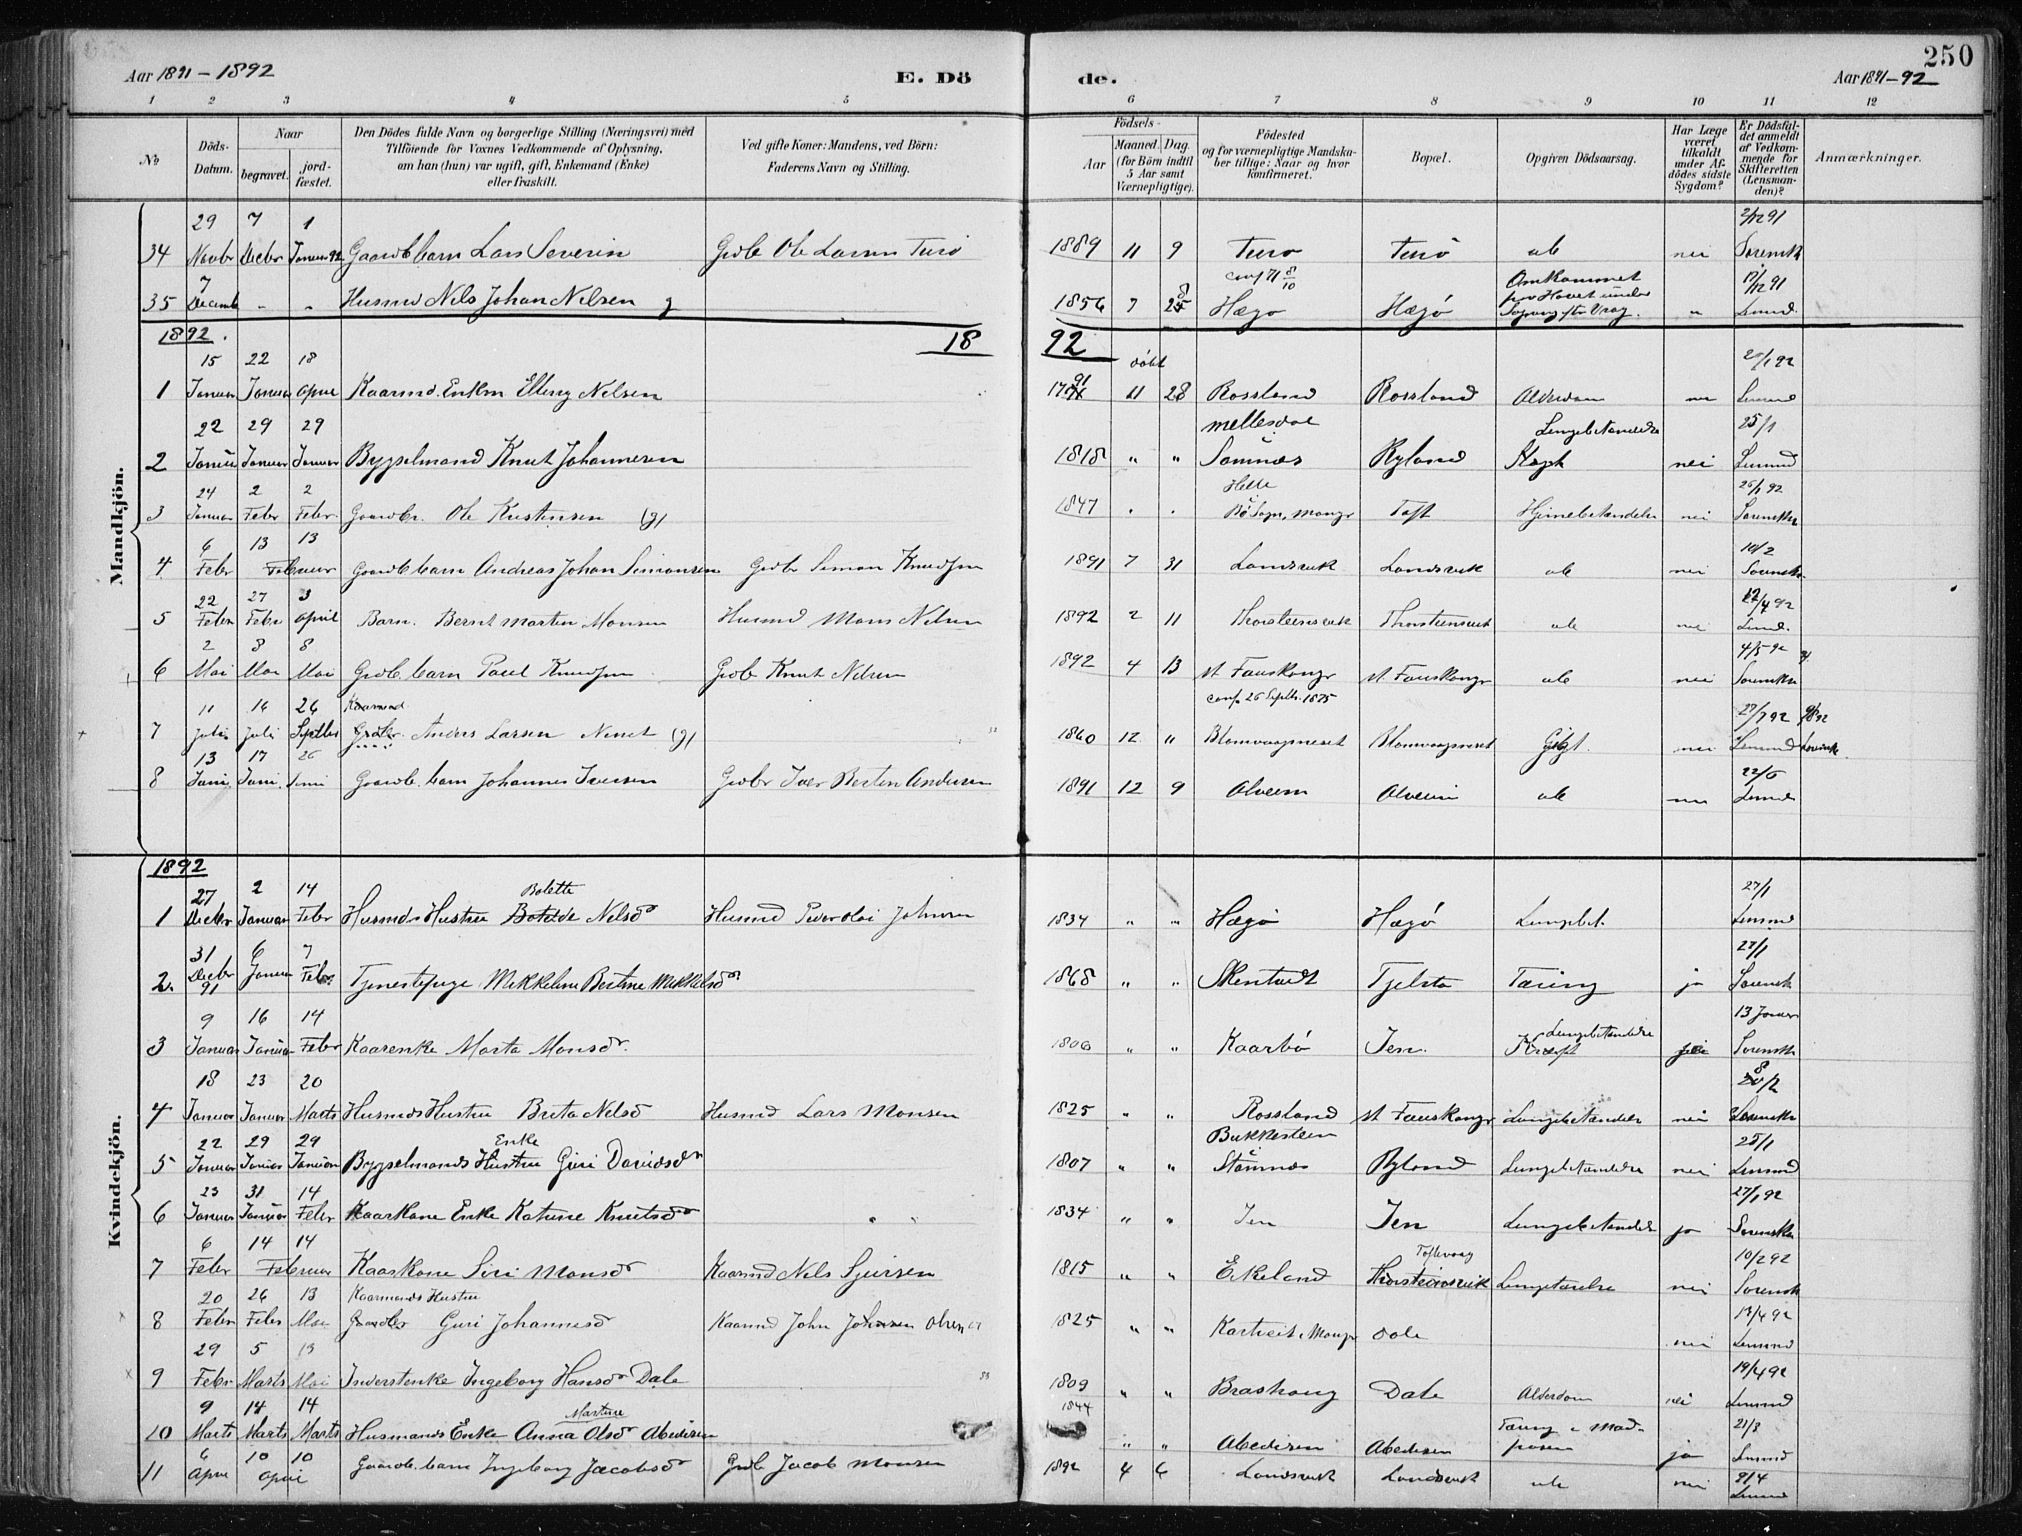 250
Aar 1891 - 1892
E. Dö
de.
Aar 1891-92
1 2 3 4 5 6 7 8 9 10 11 12
№
Döds-Datum.
Naar
begravet.
jord-fæstet.
Den Dödes fulde Navn og borgerlige Stilling (Næringsvei) med
Tilföiende for Voxnes Vedkommende af Oplysning,
om han (hun) var ugift, gift, Enkemand (Enke)
eller fraskilt.
Ved gifte Koner: Mandens, ved Börn:
Faderens Navn og Stilling.
Födsels-
Aar
Maaned. Dag.
(for Börn indtil
5 Aar samt
Værnepligtige).
Födested
og for værnepligtige Mandska-
ber tillige: Naar og hvor
konfirmeret.
Bopæl.
Opgiven Dödsaarsag.
Har Læge
været
tilkaldt
under Af-
dödes sidste
Sygdom?
Er Dödsfal-
det anmeldt
af Vedkom-
mende for
Skifteretten
(Lensman-
den)?
Anmærkninger.
Mandkjön.
34 29 Novbr 7 Decbr 1 Januar 92 Gaardb barn Lars Severin Grdb Ole Larsen Turö 1889 11 9 Turö Turö ub nei 2/12 91 Sorensk
35 7 Decemb " " Husmd Nils Johan Nilsen g 1856 7 28 conf 71 8/10 Hægö Hægö Omkommet paa Havet under Vrag. " 17/12 91 Lensmd.
1892. 18 92
1 15 Januar 22 Januar 18 April Kaarmd. Enkm Elling Nilsen döbt 1791 11 28 Rossland Rossland Alderdom nei 92 Lensmd
2 22 Januar 29 Januar 29 Januar Bygselmand Knut Johannesen 1818 " " mellesdal Samnös Ryland Lungebetændelse nei 25/1 Lensmd
3 24 Januar 2 Febr 2 Febr. Gaardbr. Ole Kristensen (g) 1847 Helle Bö Sogn, Mangr Toft Hjernebetændelse nei 26/1 92 Sorenskr
4 6 Febr 13 13 Februar Gaardb barn Andreas Johan Simonsen Grdbr Simon Knudsen 1891 7 31 Landsvik Landsvik ub nei 10/2 Sorenskr.
5 22 Febr 27 Febr 3 April Barn. Bernt Martin Monsen Husmd Mons Nilsen 1892 2 11 Thorsteinsvik Thorsteinsvik ub nei 12/4 92 Lensmd.
6 2 Mai 8 Mai 8 Mai Grdb. barn Paul Knudsen Grdb Knut Nilsen 1892 4 13 st Fauskangr st Fauskangr ub nei 4/5 92 Sorenskr
7 11 Juli 16 Juli 26 Septbr Kaarmd Grdbr. Anders Larsen Neset (g) 1860 12 " conf. 26 Septbr. 1875 Blomvaagneset Blomvaagneset Gigt. nei 27/7 92 Lensmd
8 13 Juni 17 Juni. 26 Juni Gaardb. barn Johannes Iversen Grdbr Iver Bertin Andersen 1891 12 9 Alveim Alveim ub nei 22/6 Lensmd
Kvindekjön.
1892
1 27 Decbr 2 Januar 14 Febr Husmds Hustru Botilde Bolette Nilsdr Husmd Peder Olai Johnsen 1834 " " Hægö Hægö Lungebet. 27/1 Lensmd
2. 31 Decbr 91 6 Januar 7 Febr. Tjenestepige Mikkeline Bertine Mikkelsdr 1868 " " Skenstadt Tjelsta Tæring ja 27/1 Sorensk
3 9 Januar 16 Januar 14 Febr Kaarenke Marta Monsdr. 1806 " " Kaarbö Jen. Lungebetændelse Kræft 13 Januar Sorenskr
4 18 Januar 23 Januar 20 Marts Husmds Hustru Brita Nilsd Husmd Lars Monsen 1825 " " Rossland st Fauskangr Lungebetændelse nei Sorenskr
5 22 Januar 29 Januar 29 Januar Bygselmands Hustru Enke Guri Davidsdr 1807 " " Bukkesteen Stamnæs Ryland Lungebetændelse nei 25/1 Lensmd
6 23 Januar 31 Januar 14 Febr Kaarkone Enke Katrine Knutsdr 1834 " " Jen Jen Lungebetændelse ja 27/1 92 Sorenskr
7 6 Febr 14 14 Februar Kaarkone Siri Monsdr Kaarmd Nils Sjursen 1815 " " Eikeland Toftevaag Thorsteinsvik nei 10/2 92 Sorensk
8 20 Febr 26 Febr 13 Mai Kaarmands Hustru Guri Johannesd Kaarmd John Johnsen Olsen 1825 " " Kartveit, Mangr Dale nei 13/4 92 Lensmd
9 29 Febr 5 Marts 13 Mai Inderstenke Ingeborg Hansdr Dale 1809 " " Dale Alderdom nei 19/4 92 Lensmd
10 9 Marts 14 Marts 14 Marts Husmands Enke Anna Martine Olsdr Abedisen 1844 " " Abedisen Abedisen Tæring ja 21/3 Lensmd
11 6 April 10 10 April Gaardb. barn Ingeborg Jacobsdr Grdb Jacob Monsen 1892 4 6 Landsvik Landsvik ub nei 9/4 Lensmd